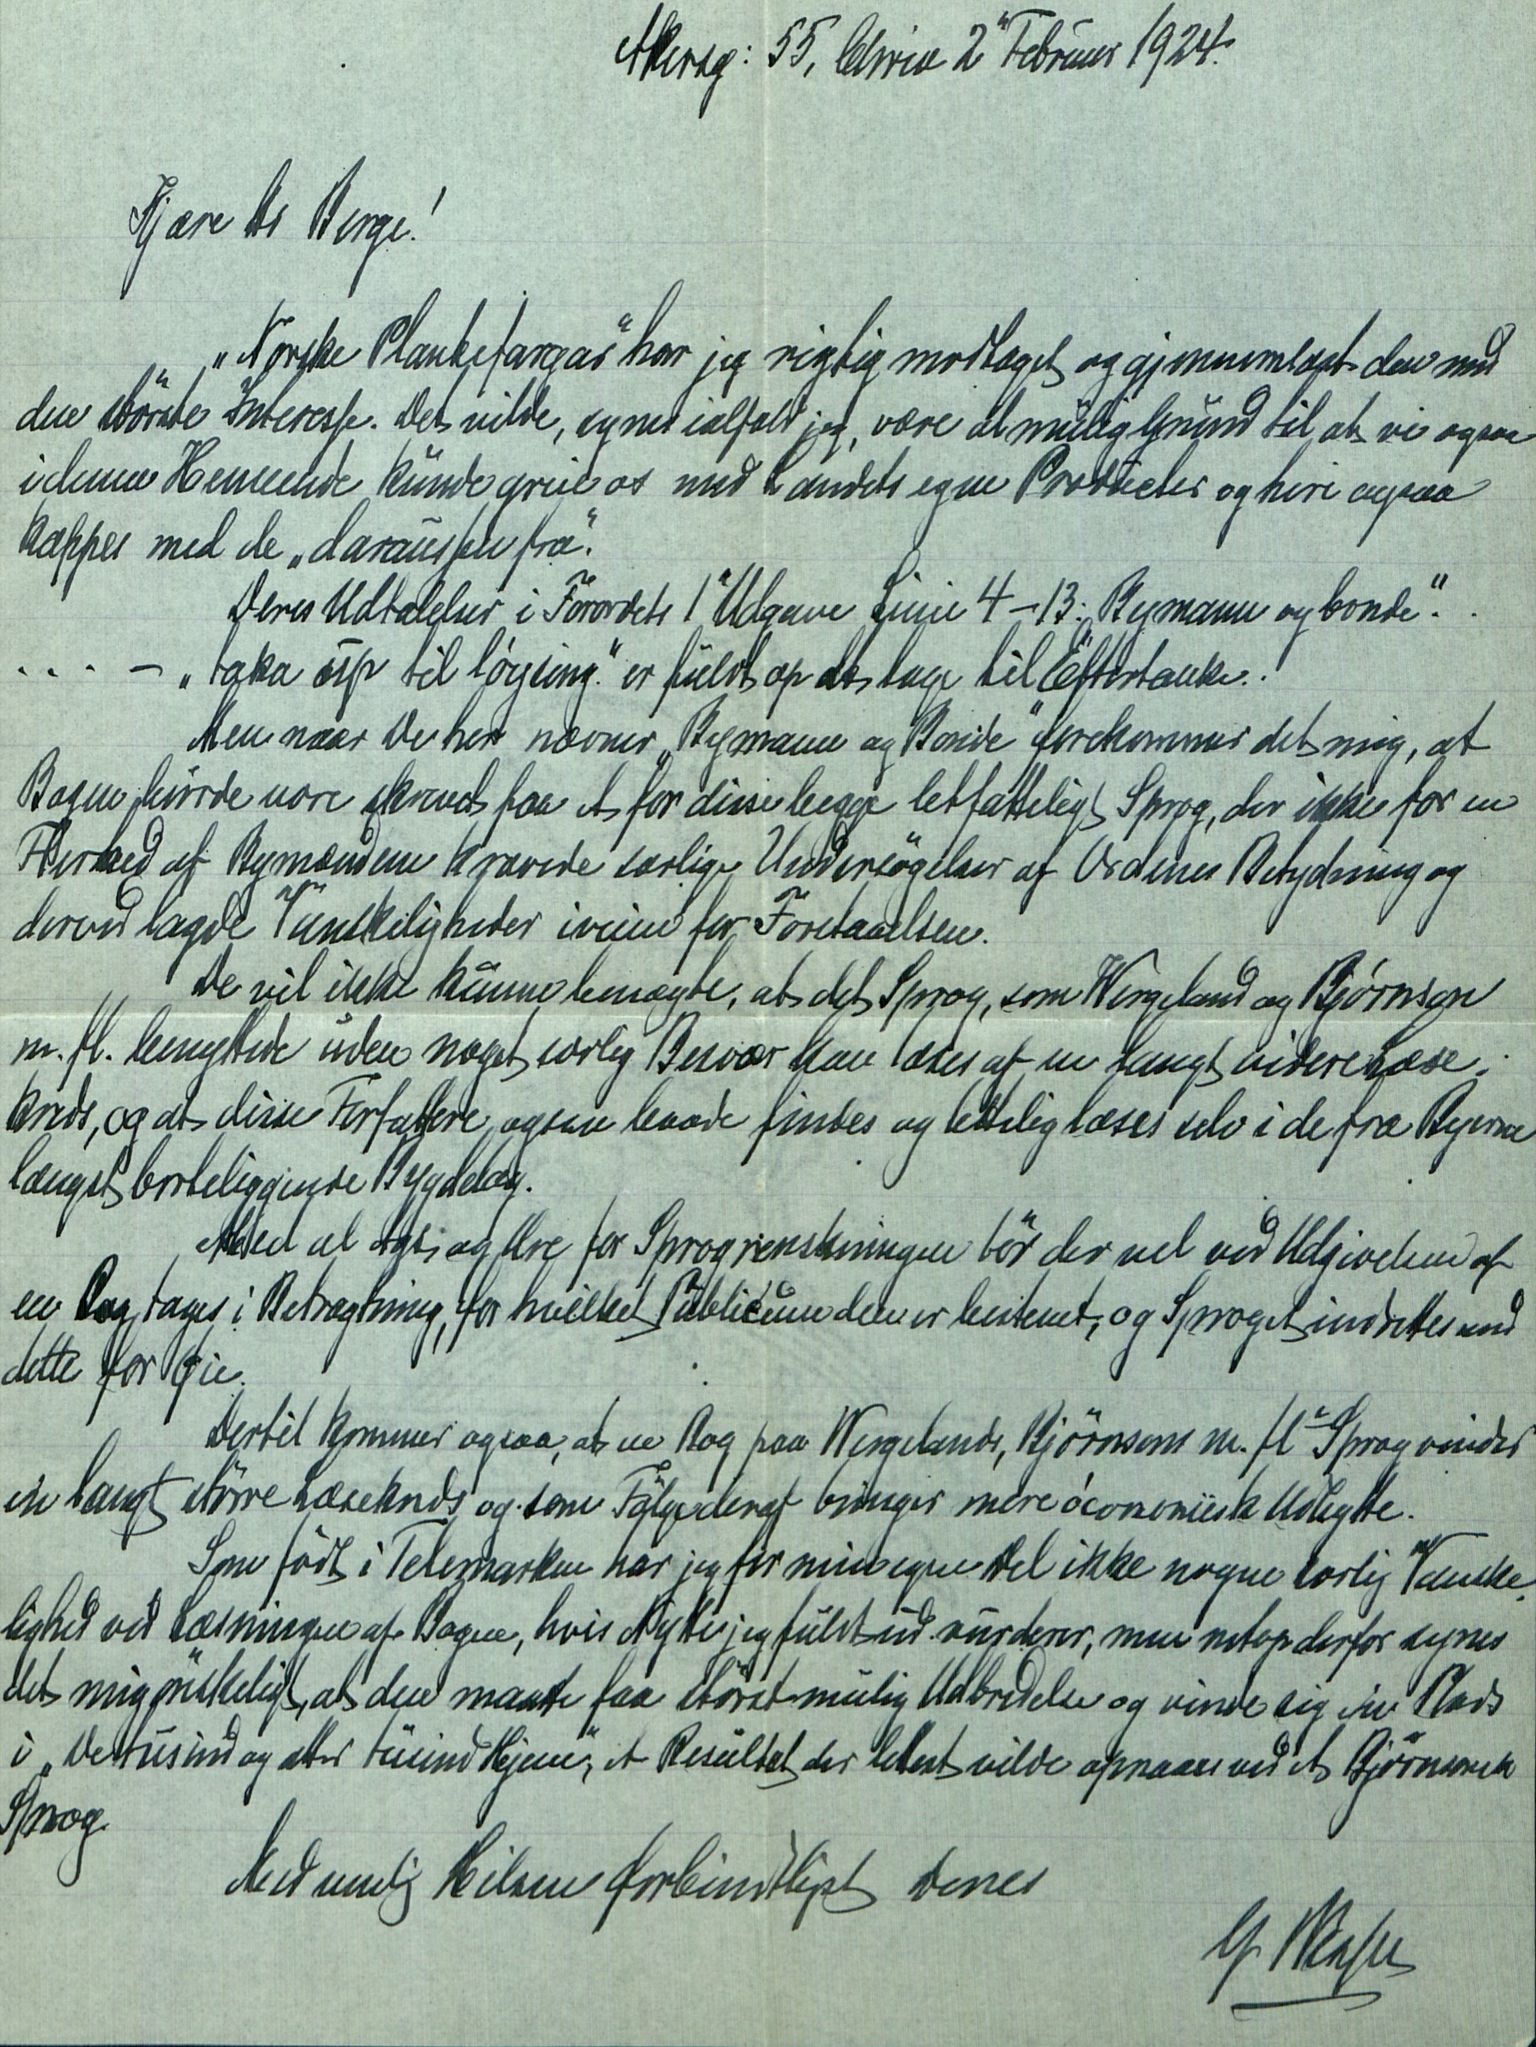 Akersg: 55, Chria 2" Februar 1924.
Kjære Hr Berge!
"Norske Plantefargar" har jeg rigtig modtaget og gjennemlæst den med
den störste Interesse. Det vilde, synes ialfald jeg, være al mulig Grund til at vi ogsaa
i denne Henseende kunde greie os med Landets egne Producter og heri ogsaa
kappes med de "daraussen fra".
Deres Udtalelser i Forordets 1" Udgave Linie 4-13: Bymann og bonde".
. . . . – "taka up til löysing." er fuldt op at tage til Eftertanke.
Men naar De her nævner "Bymann og Bonde" forekommer det mig, at
Bogen burde være skrevet paa et for disse begge letfatteligt Sprog, der ikke for en
Flerhed af Bymændene krævede særlige Undersögelser af Ordenes Betydning og
derved lagde Vanskeligheder iveien for Forstaaelsen.
De vil ikke kunne benægte, at det Sprog, som Wergeland og Bjørnson
m. fl. benyttede uden noget særlig Besvær kan læses af en langt videre Læse-
kreds, og at disse Forfattere ogsaa baade findes og lettelig læses selv i de fra Byerne
længst bortliggende Bygdelag.
Med al Agt og Ære for Sprogrenskningen bör der vel ved Udgivelsen af
en Bog tages i Betragtning, for hvilket Publicum den er bestemt, og Sproget indrettes med
dette for Øie.
Dertil kommer ogsaa, at en Bog paa Wergelands, Björnsons m. fl" Sprog vinder
en langt större Læsekreds og som Fölge deraf bringer mere öconomisk Udbytte.
Som födt i Telemarken har jeg for min egen Del ikke nogen særlig Vanske-
lighed ved Læsningen af Bogen, hvis Nytte jeg fuldt ud vurderer, men netop derfor synes
det mig önskeligt, at den maatte faa störst mulig Udbredelse og vinde sig en Plads
i "De tusind og atter tusind Hjem", et Resultat der lettest vilde opnaaes ved et Björnsonsk
Sprog.
Med venlig Hilsen forbindtligst Deres